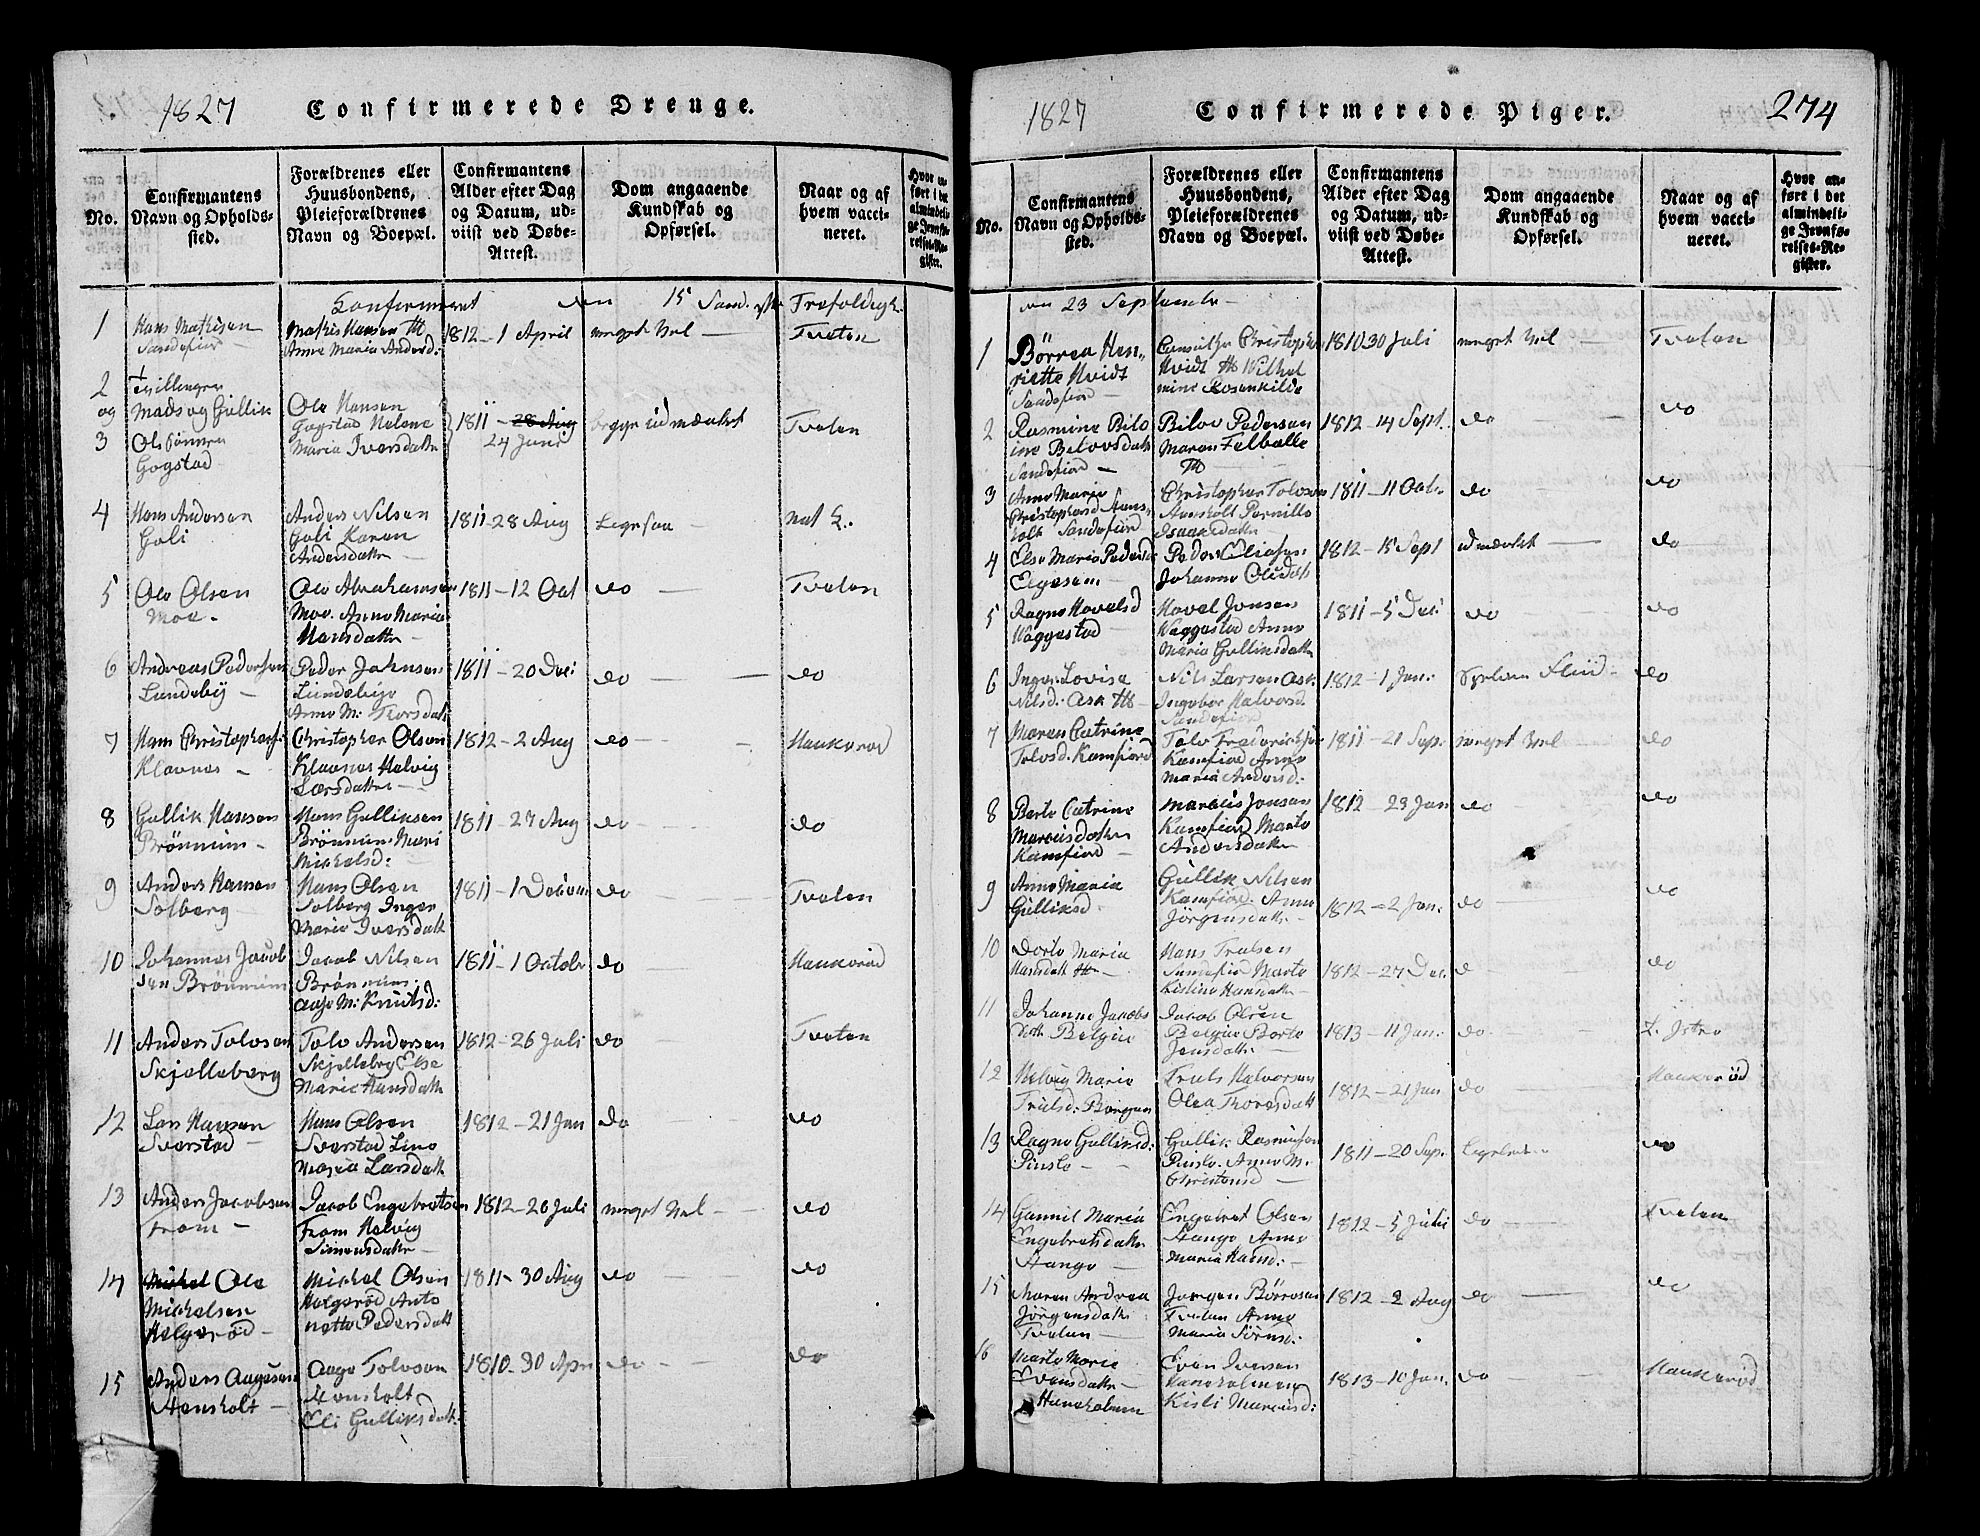 1827 Confirmerede Drenge.
No.
Confirmantens Navn og Opholds-sted.
Forældrenes eller Huusbondens, Pleieforældrenes Navn og Boepæl.
Confirmantens Alder efter Dag og Datum, ud-viist ved Døbe-Attest.
Dom angaaende Kundskab og Opførsel.
Naar og af hvem vacci-neret.
Hvor an-ført i det almindeli-ge Jevnfø-relses-Re-gister.
Confirmeret den 15 Sønd. Trefoldigh.
1 Hans Mathisen Sandefior
Mathis Hansen Th Anne Maria Andersd:
1812 - 1 April
meget Vel
Tveten
2 og 3 Tvillinger Mads og Gullik Olsønner Gogstad
Ole Hansen Gogstad Helene Maria Iversdattr
1811 - 28 Aug 24 Juni
begge udmærket
Tveten
4 Hans Andersen Goli
Anders Nilsen Goli Karen Andersdattr
1811 - 28 Aug
Ligesaa
nat k.
5 Ole Olsen Moe.
Ole Abrahamsen Moe. Anne Maria Hansdattr
1811 - 12 Oct
do
Tveten
6 Andreas Pedersen Lundeby
Peder Johnsen Lundebye Anne M: Thorsdatt
1811 - 20 Dec:
do
do
7 Hans Christophers: Klavnes
Christopher Olsen Klavnes Helvig Larsdattr
1812 - 2 Aug
do
Haukerød
8 Gullik Hansen Brönnum
Hans Gulliksen Brönnum Mari Michelsd:
1811 - 27 Aug
do
do
9 Anders Hansen Solberg
Hans Olsen Solberg Inger Maria Iversdatt
1811 - 1 Decem
do
Tveten
10 Johannes Jacobsen Brönnum
Jacob Nilsen Brönnum: Aase M: Knudsd:
1811 - 1 Octobr
do
Haukerød
11 Anders Tolvsen Skjelleberg
Tolv Andersen Skjelleberg Else Marie Hansdatt
1812 - 26 Juli
do
Tveten
12 Lars Hansen Sverstad
Hans Olsen Sverstad Line Maria Larsdatt
1812 - 21 Jan
do
do
13 Anders Jacobsen From
Jacob Engebretsen From Helvig Simensdattr
1812 - 26 Juli
meget Vel
do
14 Michel Ole Michelsen Helgerød
Michel Olsen Helgerød Antonette Pedersdatt
1811 - 30 Aug
do
do
15 Anders Aagesen Aensholt
Aage Tolvsen Aensholt Eli Gulliksdatt.
1810 - 30 Apr
do
do
1827 Confirmerede Piger. 274
No.
Confirmantens Navn og Opholds-sted.
Forældrenes eller Huusbondens, Pleieforældrenes Navn og Boepæl.
Confirmantens Alder efter Dag og Datum, ud-viist ved Døbe-Attest.
Dom angaaende Kundskab og Opførsel.
Naar og af hvem vacci-neret.
Hvor an-ført i det almindeli-ge Jevnfø-relses-Re-gister.
den 23 Septembr
1 Börrea Henriette Hvidt Sandefiord
Christopher Hvidt Th Wilhelmine Rosenkilde
1810 30 Juli
meget Vel
Tveten
2 Rasmine Biloine Bilovsdatt Sandefiord
Bilov Pedersen Maren Felballe Th
1812 - 14 Sept.
do
do
3 Anne Marie Christophersd Aensholt Sandefiord
Christopher Tolvsen Aensholt Pernille Isaaksdattr
1811 - 11 Octr
do
do
4 Else Maria Pedersd Elgesem
Peder Eliasen Johanne Olsdatt
1812 - 15 Sept
udmærket
do
5 Ragne Hovelsd Waggestad
Hovel Jonsen Waggestad Anne Maria Gulliksdattr
1811 - 5 Dec:
do
do
6 Inger Lovise Nilsd: Ask Th
Nils Larsen Ask Ingebor Halvorsd. Sandefiord
1812 - 1 Jan:
Fliid
do
7 Maren Catrine Tolvsd. Kamfiord
Tolv Frederichsen Kamfiord Anne Maria Andersd:
1811 - 21 Sep.
meget Vel
do
8 Berte Catrine Marcusdatter Kamfiord
Marcus Jonsen Kamfiord Marte Andersdattr
1812 - 23 Jan
do
do
9 Anne Maria Gulliksd.
Gullik Nilsen Kamfiord. Anne Jörgensdattr
1812 - 2 Jan:
do
do
10 Dorte Maria Hansdatt Th
Hans Trulsen Sandefiord Marte Kistine Hansdattr
1812 - 27 Dec.
do
do
11 Johanne Jacobsdattr Belgiu
Jacob Olsen Belgiu Berte Jensdattr
1813 - 11 Jan:
do
12 Helvig Maria Trulsd: Bergan
Truls Halvorsen Olea Thoresdatt
1812 - 21 Jan
do
Haukerød
13 Ragne Gulliksd: Pinslo
Gullik Rasmusen Pinslo. Anne M. Christensd
1811 - 20 Sep.
Ligeledes
do
14 Gunnil Maria Engebretsdattr Stange
Engebret Olsen Stange Anne Maria Hansd:
1812 - 5 Julii
do
Tveten
15 Maren Andrea Jörgensdattr Tveten
Jørgen Börresen Tveten Anne Maria Sörensd:
1812 - 2 Aug
do
do
16 Marte Marie Evensdattr Haneholmen
Even Iversen Haneholmen Kisti Marcusd:
1813 - 10 Jan.
do
Haukerød